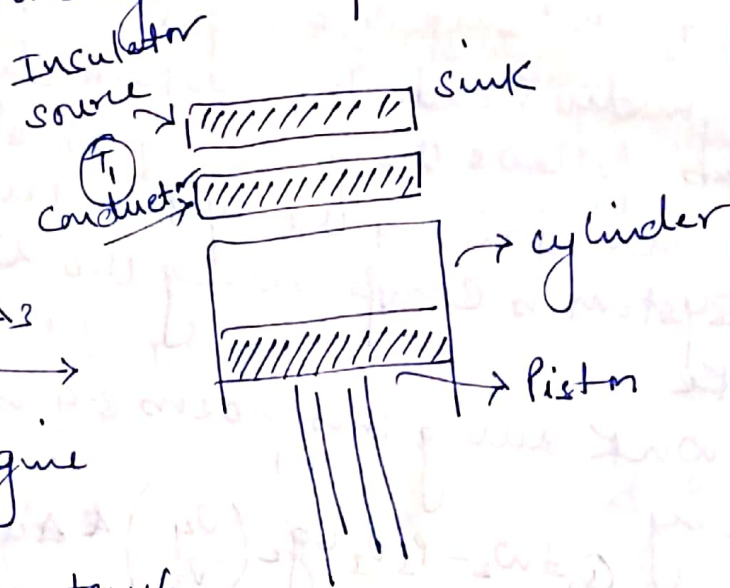 Insulator
source
sink
T1
Conductor
cylinder
Piston
gine